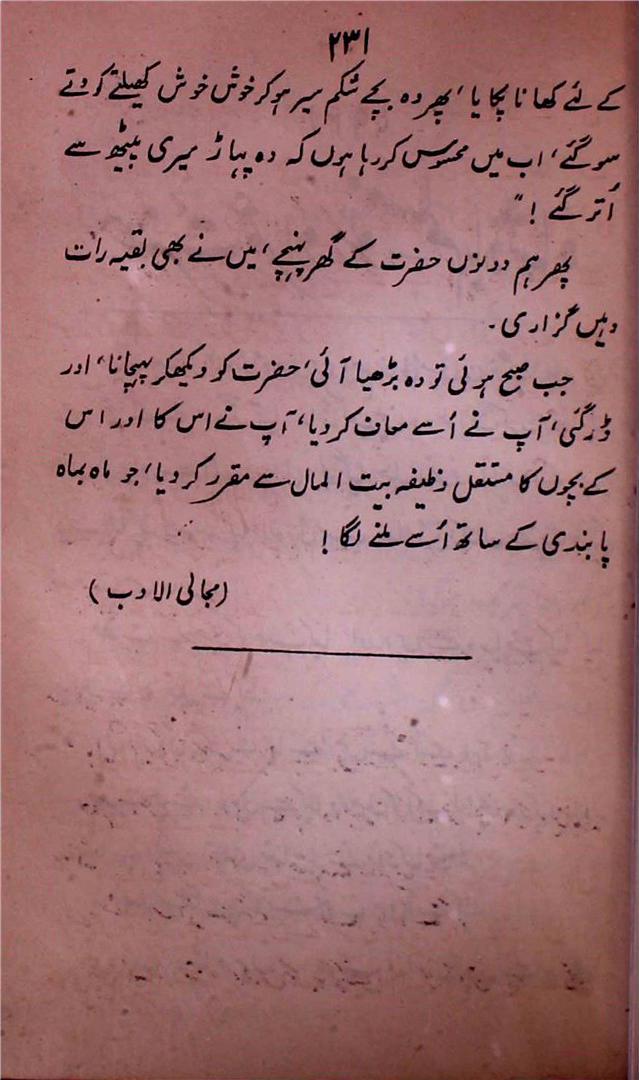 ۲۳۱
کے لئے کھانا پکایا، پھر وہ بچے شکم سیر ہو کر خوش خوش کھیلتے کودتے
سو گئے، اب میں محسوس کر رہا ہوں کہ وہ پہاڑ میری پیٹھ سے
اُتر گئے !"
پھر ہم دونوں حضرت کے گھر پہنچے، میں نے بھی بقیہ رات
وہیں گزاری۔
جب صبح ہوئی تو وہ بڑھیا آئی، حضرت کو دیکھکر پہچانا، اور
ڈر گئی، آپ نے اُسے معاف کر دیا، آپ نے اس کا اور اس
کے بچوں کا مستقل وظیفہ بیت المال سے مقرر کر دیا، جو ماہ بماہ
پابندی کے ساتھ اُسے ملنے لگا !
(مجالی الادب)